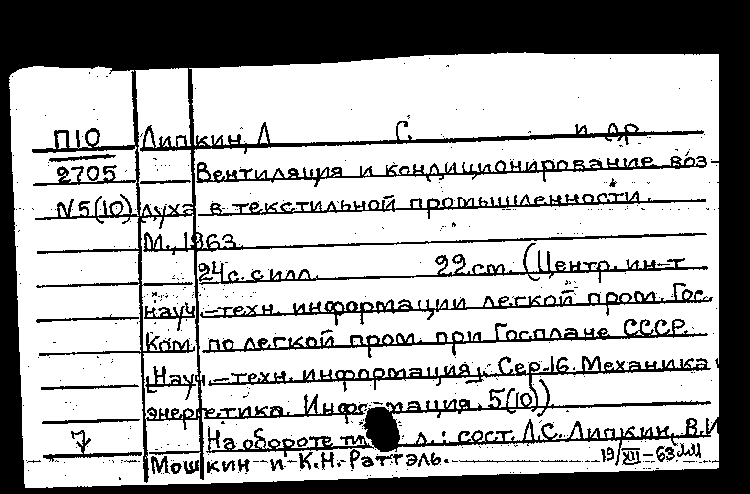 П10 Липкин, Л С. и др.
2705 Вентиляция и кондиционирование воз-
N5(10) духа в текстильной промышленности.
М., 1963.
24с. с илл. 22см. (Центр. ин-т
науч.-техн. информации легкой пром. Гос.
Ком. по легкой пром. при Госплане СССР.
Науч.-техн. информация. Сер.16. Механика и
энергетика. Информация. 5(10))
7 На обороте л.: сост. Л.С. Липкин, В.И
Мошкин и К.Н. Раттэль. 19/XII-63